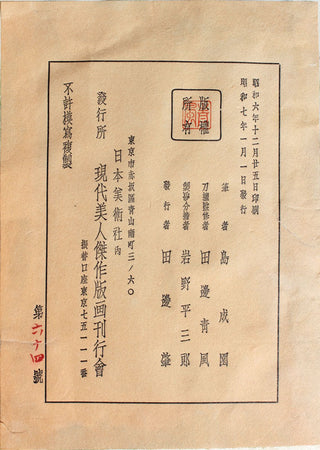 昭和六年十二月廿五日印刷
昭和七年一月一日發行
版權
所有
筆者 島成園
田邊青風
岩野平三郎
發行者 田邊雄
東京市赤坂區青山南町三ノ六〇
日本美術社内
發行所 現代美人傑作版画刊行會
振替口座東京七五一一一番
不許模寫複製
第六十四號